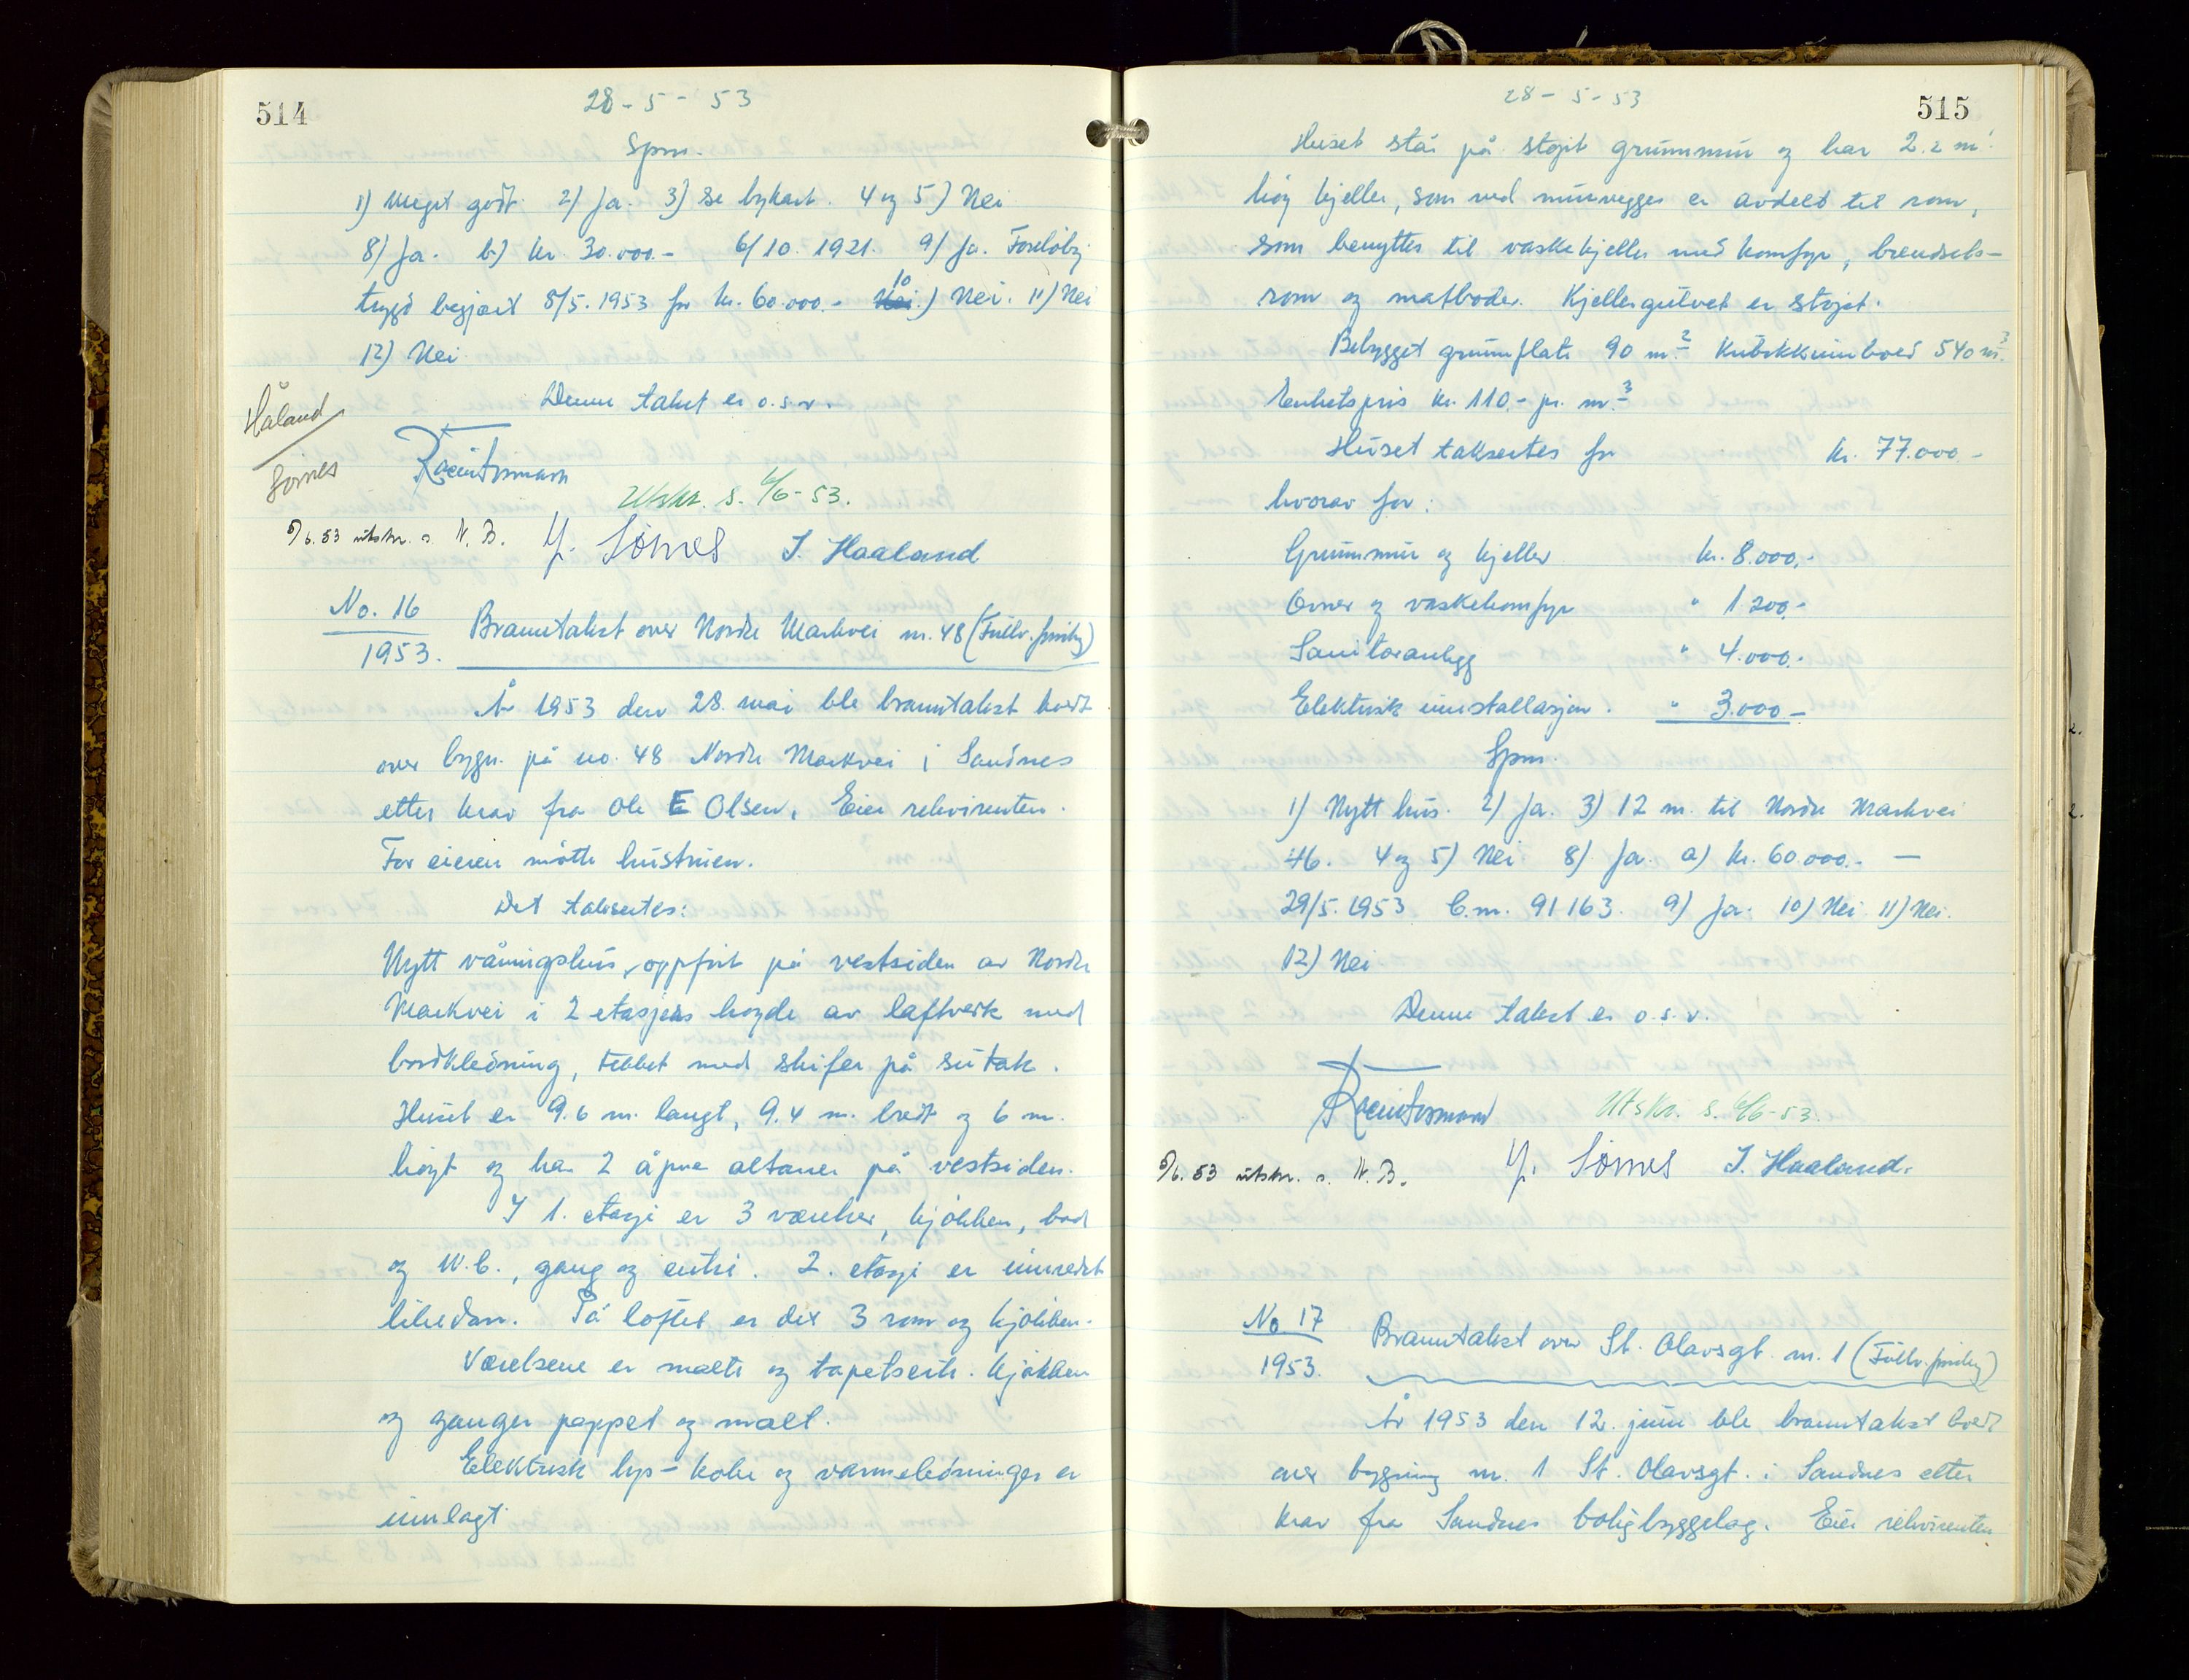 514
28-5-53
Spm.
1) Meget godt. 2) Ja. 3) Se bykart. 4 og 5) Nei
8) Ja. b) kr. 30.000.- 6/10. 1921. 9) Ja. Foreløbig
trygd begjært 8/5.1953 for kr. 60.000.- 10) Nei. 11) Nei
12) Nei
Denne takst er o.s.v.
Håland
Sømes
Utskr. s. 6/6-53.
5/6.53 utskr. s. N. B. Sømes I. Haaland
No. 16
1953.
Branntakst over Nordre Markvei nr. 48 (Fullv. forsikr.)
År 1953 den 28. mai ble branntakst holdt
over bygn. på no. 48 Nordre Markvei i Sandnes
etter krav fra Ole E Olsen. Eier rekvirenten.
For eieren møtte hustruen.
Det takseertes:
Nytt våningshus, oppført på vestsiden av Nordre
Markvei i 2 etasjers høyde av laftverk med
bordkledning, tekket med skifer på sutak.
Huset er 9.6 m. langt, 9.4 m. bredt og 6 m.
høyt og har 2 åpne altaner på vestsiden.
I 1. etasje er 3 værelser, kjøkken, bad
og W.C., gang og entre. 2. etasje er innredet
likedan. På loftet er det 3 rom og kjøkken.
Værelsene er malte og tapetserte. Kjøkken
og ganger pappet og malt.
Elektrisk lys- koke og varmeledninger er
innlagt
28-5-53
515
Huset står på støpt grunnmur og har 2.2 m.
høy kjeller, som ved murvegger er avdelt til rom,
som benyttes til vaskekjeller med komfyr, brendsels-
rom og matboder. Kjellergulvet er støpt.
Bebygget grunnflate 90 m.2 Kubikkinnhold 540 m.3
Enhetspris kr. 110.- pr. m.3
Huset takseertes for kr. 77.000-
hvorav for:
Grunnmur og kjeller kr. 8.000,-
Ovner og vaskekomfyr " 1.200,-
Sanitæranlegg " 4.000,-
Elektrisk innstallasjon. " 3.000-
Spm.
1) Nytt hus. 2) Ja. 3) 12 m. til Nordre Markvei
46. 4 og 5) Nei 8) Ja. a) kr. 60.000.- —
29/5.1953 C.m. 91163. 9) Ja. 10) Nei 11) Nei.
12) Nei
Denne takst er o.s.v.
Utskr. s. 6/6-53.
5/6.53 utskr. s. N. B. Sømes I. Haaland.
No 17
1953.
Branntakst over St. Olavsgt. nr. 1 (Fullv. forsikr.)
År 1953 den 12. juni ble branntakst holdt
over bygning nr. 1 St. Olavsgt. i Sandnes etter
krav fra Sandnes boligbyggelag. Eier rekvirenten